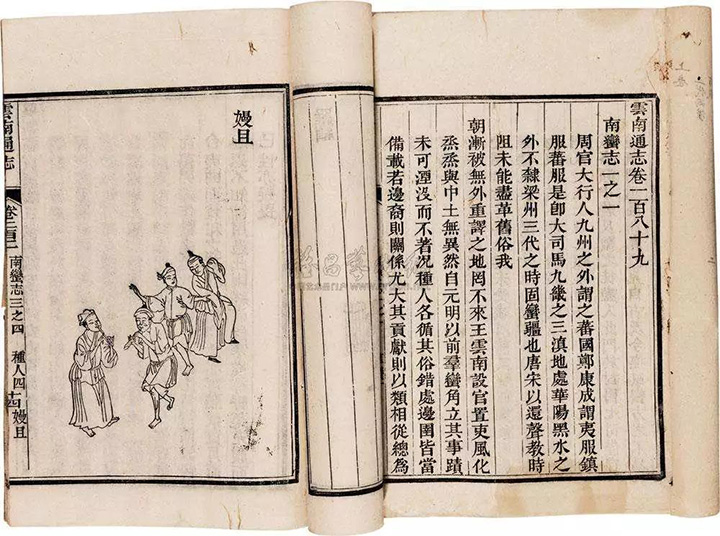 雲南通志卷一百八十九
南蠻志一之一
周官大行人九州之外謂之蕃國鄭康成謂夷服鎮
服蕃服是卽大司馬九畿之三滇地處華陽黑水之
外不隸梁州三代之時固蠻疆也唐宋以還聲教時
阻未能盡革舊俗我
朝漸被無外重譯之地罔不來王雲南設官置吏風化
烝烝與中土無異然自元明以前羣蠻角立其事蹟
未可湮没而不著况種人各循其俗錯處邊圉皆當
備載若邊裔則關係尤大其貢獻則以類相從總為
嫚且
雲南通志
卷二百二
南蠻志三之四
種人四
十四
嫚且